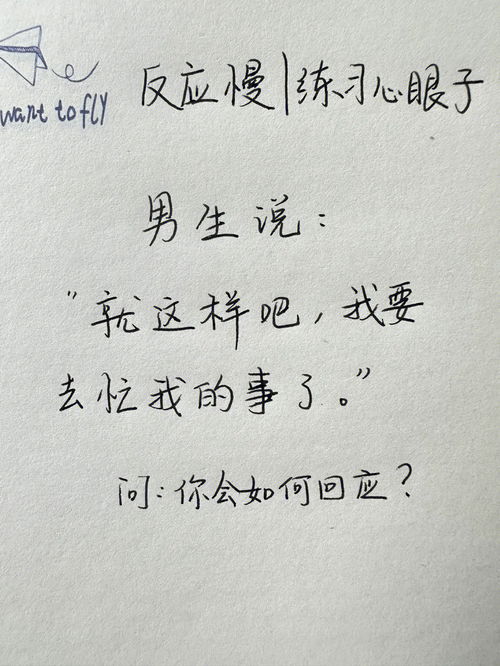 want to fly
反应慢|练习心眼子
男生说：
"就这样吧，我要
去忙我的事了。"
问：你会如何回应？